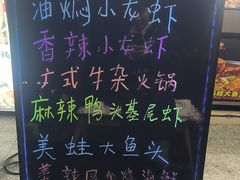 油焖小龙虾
香辣小龙虾
广式牛杂火锅
麻辣鸭头基尾虾
美蛙大鱼头